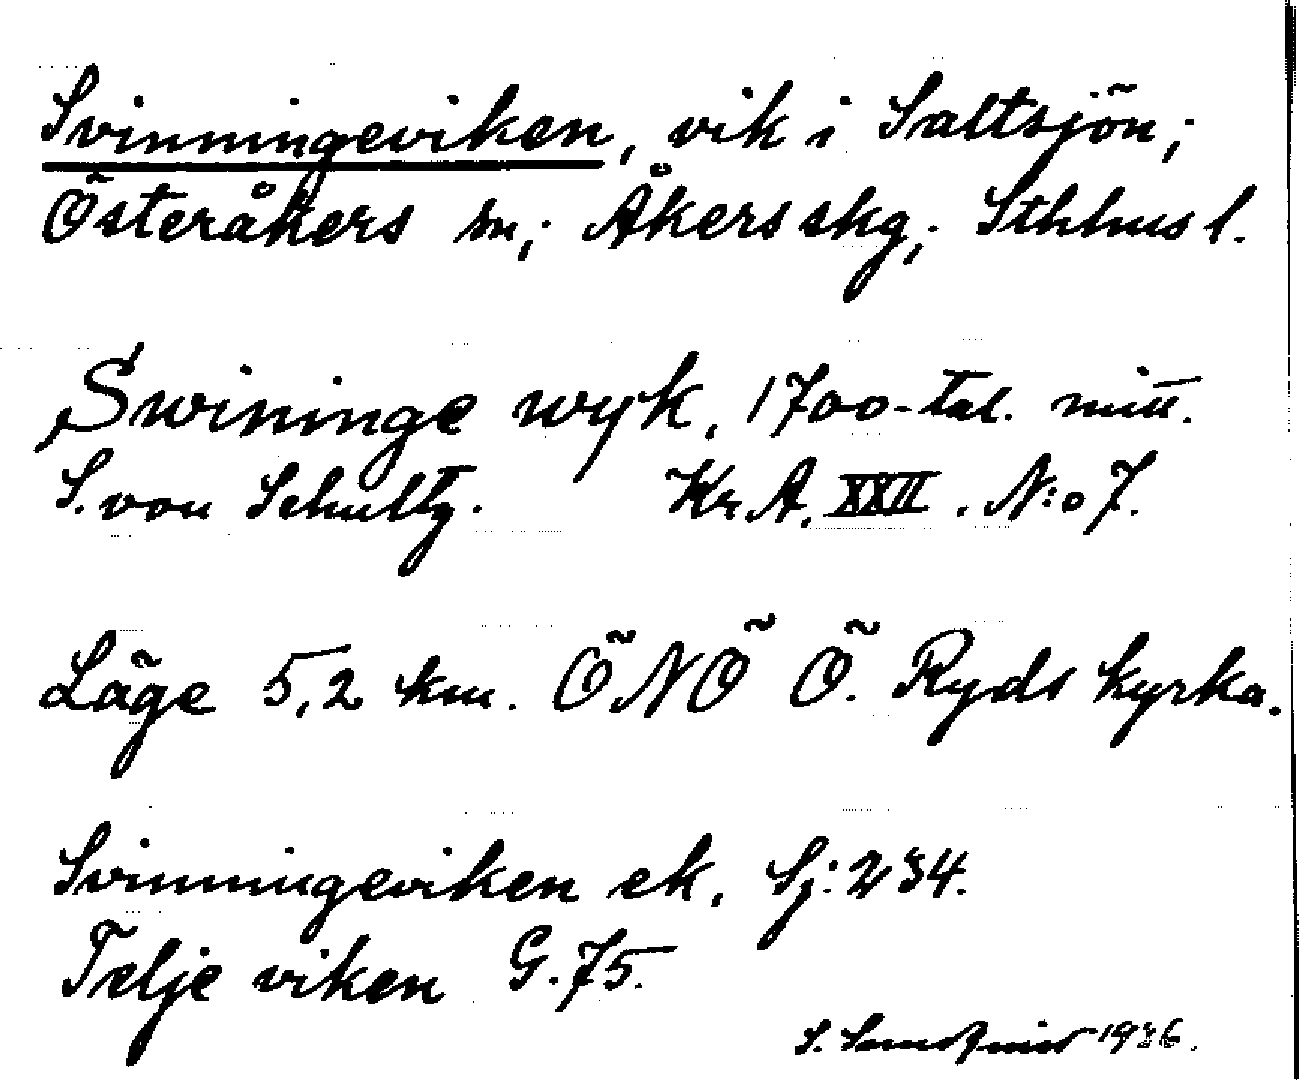 Svinningeviken, vik i Saltsjön;
Österåkers sn; Åkers skg; Sthlms l.
Swininge wyk, 1700-tal. mitt.
S. von Schultz. Kr. A. XXII. N:o 7.
Läge 5,2 km. ÖNÖ Ö. Ryds kyrka.
Svinningeviken ek. Sj: 234.
Telje viken G. 75.
S. 1936.